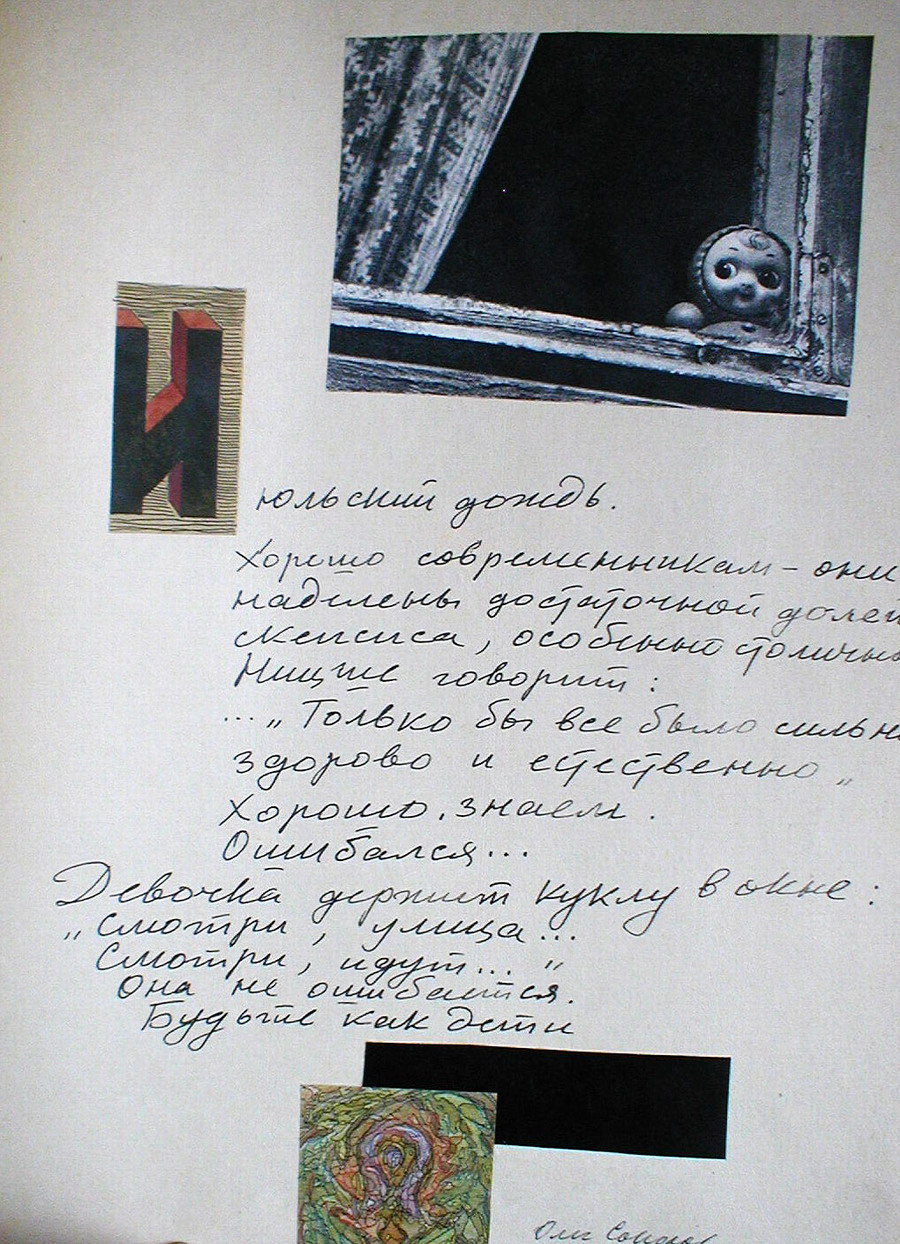 Июльский дождь.
Хорошо современникам – они
наделены достаточной долей
скепсиса, особенно столичны
Ницше говорит:
..."Только бы все было сильно
здорово и естественно"
Хорошо, знаем.
Ошибался...
Девочка держит куклу в окне:
"Смотри, улица...
Смотри, идут..."
Она не ошибается.
Будьте как дети
Олег